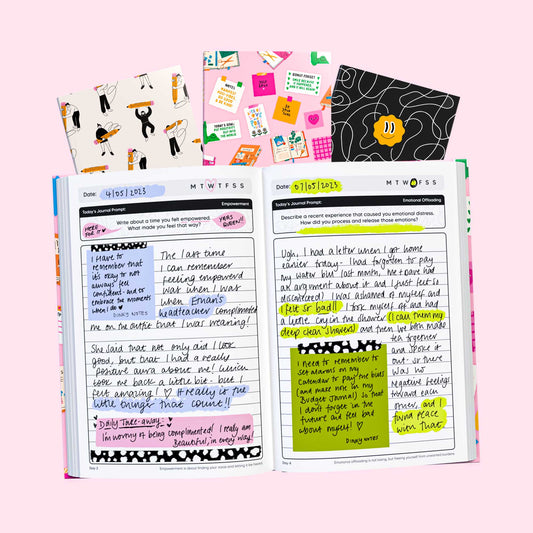 NOTES:
DONUT FORGET
TODAY'S GOAL:
Date: 4/05/2023
M T W T F S S
Today's Journal Prompt:
Empowerment
HERE FOR IT
Write about a time you felt empowered.
What made you feel that way?
YASS QUEEN!!
I have to
remember that
it's okay to not
always feel
confident - and to
embrace the moments
when I do
DINKY NOTES
The last time
I can remember
feeling empowered
was when I was
when Ethan's
headteacher complimented
me on the outfit that I was wearing!
She said that not only did I look
good, but that I had a really
positive aura about me! Which
took me back a little bit - but I
felt amazing! ♡ #really is the
little things that count!!
Daily Take-away:
I'm worthy of being complimented! I really am
Beautiful, in every way!
Day 5
Empowerment is about finding your voice and letting it be heard.
Date: 07/05/2023
M T W T F S S
Today's Journal Prompt:
Emotional Offloading
Describe a recent experience that caused you emotional distress.
How did you process and release those emotions?
Ugh, I had a letter when I got home
earlier today - I had forgotten to pay
my water bill last month, me + Dave had
an argument about it and I just felt so
disordered! I was ashamed of myself and
I felt so bad!! I took myself off and had
a little cry in the shower (I call them my
deep clean showers) and then we both made
tea together
and spoke it
out - so there
was no
negative feelings
toward each
other, and I
found peace
with that.
I need to remember to
set alarms on my
Calendar to pay the bills
(and make note in my
Budget Journal) so that
I don't forget in the
future and feel bad
about myself! ♡
DINKY NOTES
Emotional offloading is not losing, but freeing yourself from unwanted burdens.